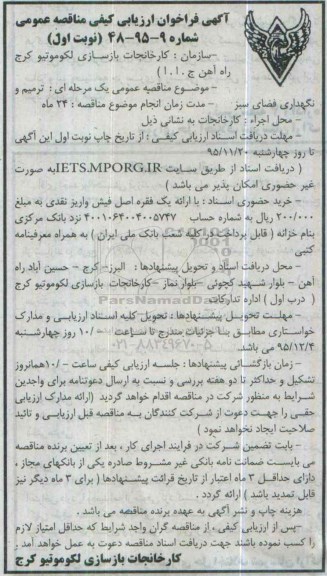 آگهی فراخوان ارزیابی کیفی مناقصه عمومی
شماره ۹-۹۵-۴۸ (نوبت اول)
-سازمان : کارخانجات بازسازی لکوموتیو کرج
راه آهن ج.ا.ا )
-موضوع مناقصه عمومی یک مرحله ای : ترمیم و
نگهداری فضای سبز - مدت زمان انجام موضوع مناقصه : ۲۴ ماه
- محل اجراء : کارخانجات به نشانی ذیل
- مهلت دریافت اسناد ارزیابی کیفی : از تاریخ چاپ نوبت اول این آگهی
تا روز چهارشنبه ۹۵/۱۱/۲۰
( دریافت اسناد از طریق سایت IETS.MPORG.IR به صورت
غیر حضوری امکان پذیر می باشد )
- خرید حضوری اسناد : با ارائه یک فقره اصل فیش واریز نقدی به مبلغ
۲۰۰/۰۰۰ ریال به شماره حساب ۴۰۰۱۰۶۴۰۰۴۰۰۵۷۴۷ نزد بانک مرکزی
بنام خزانه ( قابل پرداخت در کلیه شعب بانک ملی ایران ) به همراه معرفینامه
کتبی
- محل دریافت اسناد و تحویل پیشنهادها : البرز- کرج - حسین آباد راه
آهن - بلوار شهید کچوئی -بلوار نماز -کارخانجات بازسازی لکوموتیو کرج
( درب اول ) اداره تدارکات
- مهلت تحویل پیشنهادها : تحویل کلیه اسناد ارزیابی و مدارک
خواستاری مطابق بنا جزئیات مندرج تا ساعت ۱۰/۰ روز چهارشنبه
۹۵/۱۲/۴ می باشد.
- زمان بازگشائی پیشنهادها : جلسه ارزیابی کیفی ساعت ۱۰/۰ همانروز
تشکیل و حداکثر تا دو هفته بررسی و نسبت به ارسال دعوتنامه برای واجدین
شرایط به منظور شرکت در مناقصه اقدام خواهد گردید (ارائه مدارک ارزیابی
حقی را جهت دعوت از شرکت کنندگان به مناقصه قبل ارزیابی و تائید
صلاحیت ایجاد نخواهد نمود )
- بابت تضمین شرکت در فرایند اجرای کار ، بعد از تعیین برنده مناقصه
می بایست ضمانت نامه بانکی غیر مشروط صادره یکی از بانکهای مجاز ،
دارای حداقل ۳ ماه اعتبار از تاریخ قرائت پیشنهادها ( برای ۳ ماه دیگر نیز
قابل تمدید باشد ) ارائه گردد .
هزینه چاپ و نشر آگهی به عهده برنده مناقصه می باشد .
-پس از ارزیابی کیفی ، از مناقصه گران واجد شرایط که حداقل امتیاز لازم
را کسب نموده باشند جهت دریافت اسناد مناقصه دعوت به عمل خواهد آمد .
کارخانجات بازسازی لکوموتیو کرج
ParsNamadData
۰۲۱-۸۸۳۴۹۶۷۰-۵